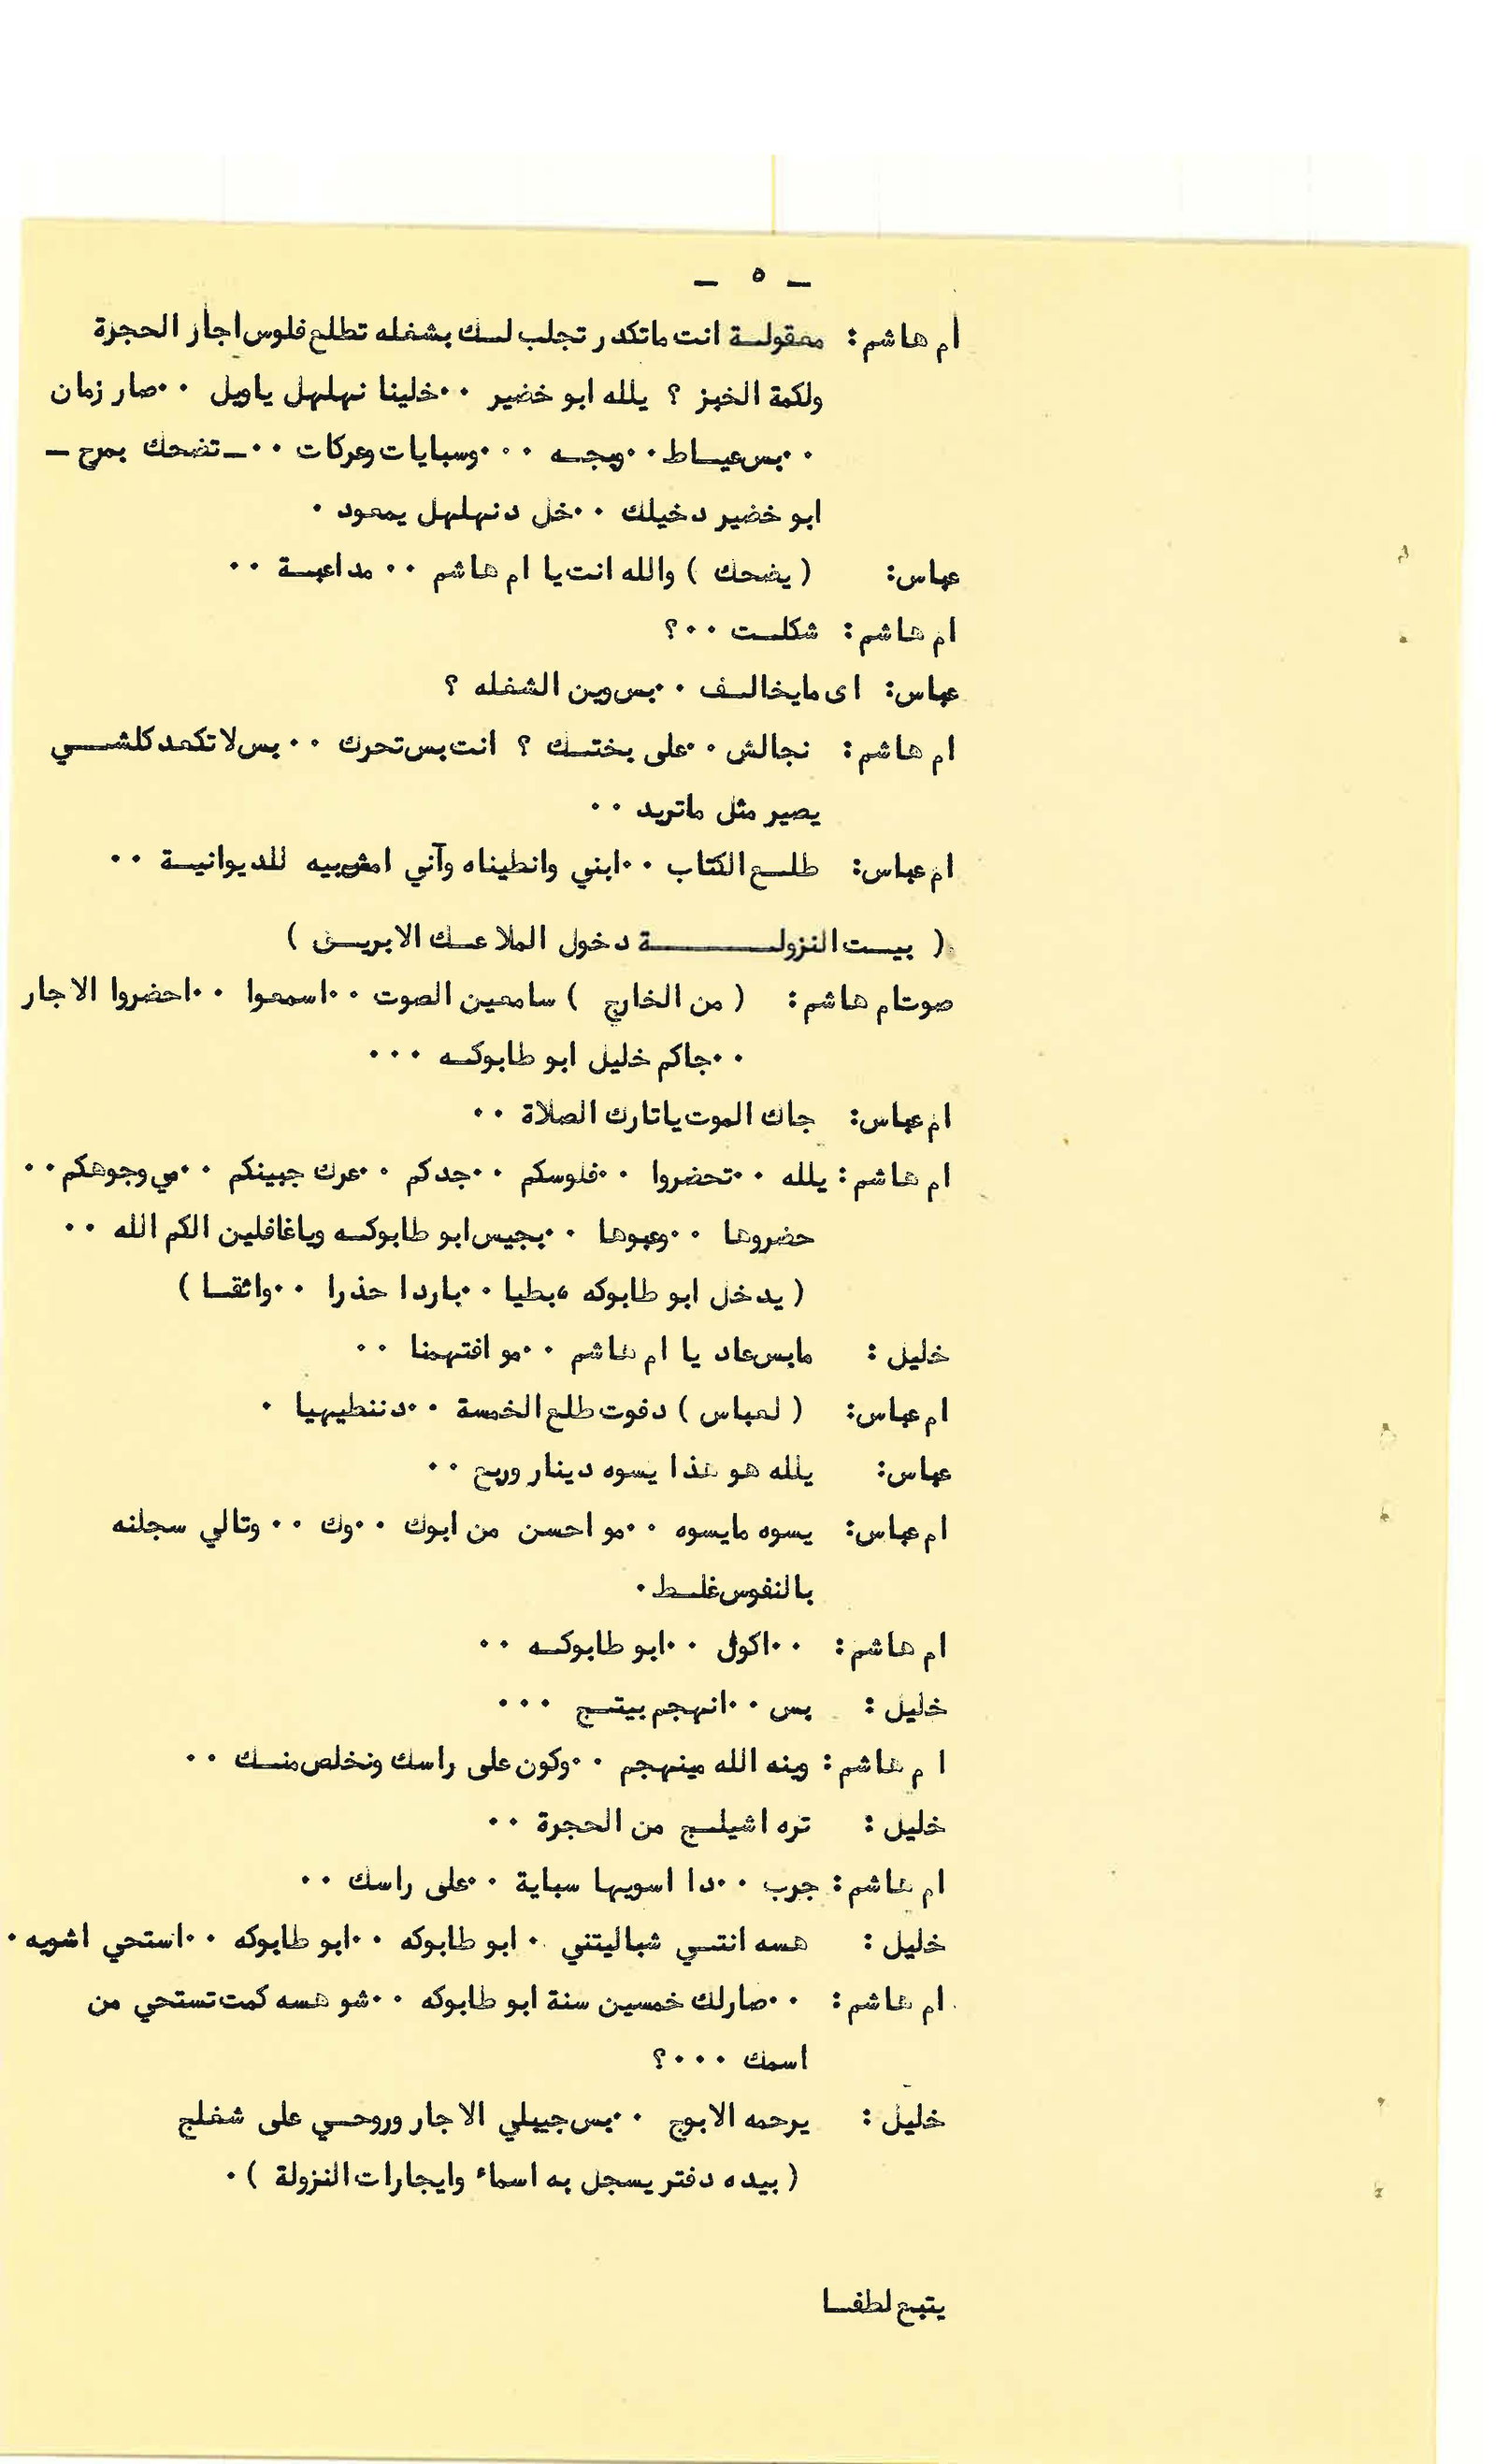 ـ ٥ ـ
ام هاشم: معقولة انت ماتكدر تجلب لك بشغله تطلع فلوس اجار الحجرة
ولكمة الخبز ؟ يلله ابو خضير ٠٠خلينا نهلهل ياويل ٠٠صار زمان
٠٠بس عياط ٠٠وبجه ٠٠٠وسبايات وعركات ٠٠ـ تضحك بمرح ـ
ابو خضير دخيلك ٠٠خل دنهلهل يمعود ٠
عباس: ( يضحك ) والله انت يا ام هاشم ٠٠ مداعبة ٠٠
ام هاشم: شكلت ٠٠؟
عباس: اى مايخالف ٠٠بس وين الشغله ؟
ام هاشم: نجالش ٠٠على بختك ؟ انت بس تحرك ٠٠ بس لا تكعد كلشي
يصير مثل ماتريد ٠٠
ام عباس: طلع الكتاب ٠٠ابني وانطيناه وآني امشي بيه للديوانية ٠٠
( بيت النزولة دخول الملا عك الابريق )
صوت ام هاشم: ( من الخارج ) سامعين الصوت ٠٠اسمعوا ٠٠احضروا الاجار
٠٠جاكم خليل ابو طابوكه ٠٠٠
ام عباس: جاك الموت ياتارك الصلاة ٠٠
ام هاشم: يلله ٠٠تحضروا ٠٠فلوسكم ٠٠جدكم ٠٠عرك جبينكم ٠٠مي وجوهكم ٠٠
حضروها ٠٠وعبوها ٠٠بجيس ابو طابوكه وياغافلين الكم الله ٠٠
( يدخل ابو طابوكه ، بطيا ٠٠باردا حذرا ٠٠واثقا )
خليل : مابس عاد يا ام هاشم ٠٠مو افتهمنا ٠٠
ام عباس: ( لعباس ) دفوت طلع الخمسة ٠٠دننطيهيا ٠
عباس: يلله هو هذا يسوه دينار وربع ٠٠
ام عباس: يسوه مايسوه ٠٠مو احسن من ابوك ٠٠وك ٠٠ وتالي سجلنه
بالنفوس غلط ٠
ام هاشم: ٠٠اكول ٠٠ابو طابوكه ٠٠
خليل : بس ٠٠انهجم بيتج ٠٠٠
ا م هاشم: وينه الله مينهجم ٠٠وكون على راسك ونخلص منك ٠٠
خليل : تره اشيلج من الحجرة ٠٠
ام هاشم: جرب ٠٠دا اسويها سباية ٠٠على راسك ٠٠
خليل : هسه انتي شباليتني ٠ ابو طابوكه ٠٠ابو طابوكه ٠٠استحي اشويه ٠
ام هاشم: ٠٠صارلك خمسين سنة ابو طابوكه ٠٠شو هسه كمت تستحي من
اسمك ٠٠٠؟
خليل : يرحمه الابوج ٠٠بس جيبلي الاجار وروحي على شغلج
( بيده دفتر يسجل به اسماء وايجارات النزولة ) ٠
يتبع لطفا